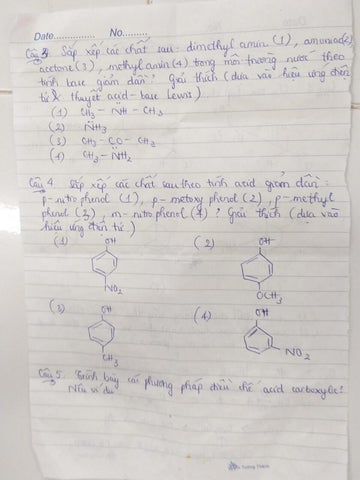 Date............... No.........
Câu 3 Sắp xếp các chất sau: dimethyl amin (1), amoniac(2)
acetone (3), methyl amin (4) trong môi trường nước theo
tính base giảm dần? Giải thích (dựa vào hiệu ứng điện
tử & thuyết acid - base Lewis)
(1) CH3 - NH - CH3
(2) NH3
(3) CH3 - CO - CH3
(4) CH3 - NH2
Câu 4. Sắp xếp các chất sau theo tính acid giảm dần:
p-nitro phenol (1), p-metoxy phenol (2), p-methyl
phenol (3), m-nitro phenol (4)? Giải thích (dựa vào
hiệu ứng điện tử.)
(1) OH (2) OH
NO2 OCH3
(3) OH (4) OH
CH3 NO2
Câu 5. Trình bày các phương pháp điều chế acid carboxylic?
Nêu ví dụ